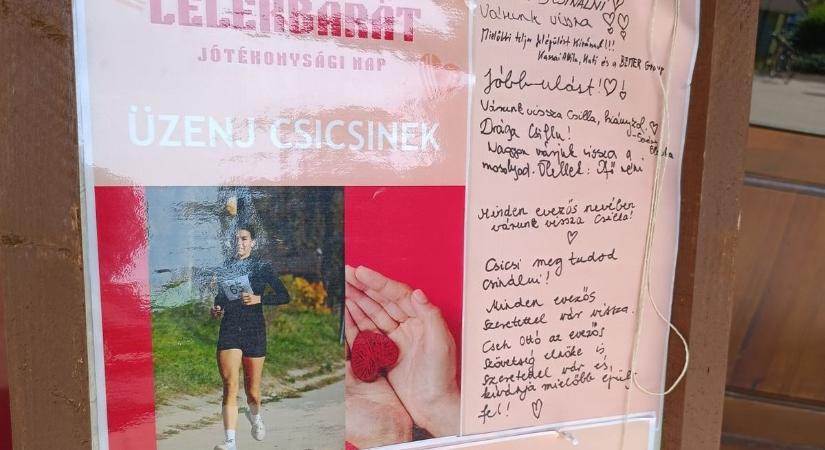 LÉLEKBARÁT
JÓTÉKONYSÁGI NAP
ÜZENJ CSICSINEK
65
CSINÁLNI
Várunk vissza
Mielőbbi teljes felépülést kívánnak!!!
Kassai Attila, Kati és a BEMER Group
Jobbulást!
Várunk vissza Csilla, hiányzol.
Drága Csilla!
Nagyon várjuk vissza a
mosolyod.
Minden evezős nevében
várunk vissza Csilla!
Csicsi meg tudod
csinálni!
Minden evezős
szeretettel vár vissza.
Cseh Ottó az evezős
szövetség elnöke is
szeretettel vár és
kívánja mielőbb épülj
fel!